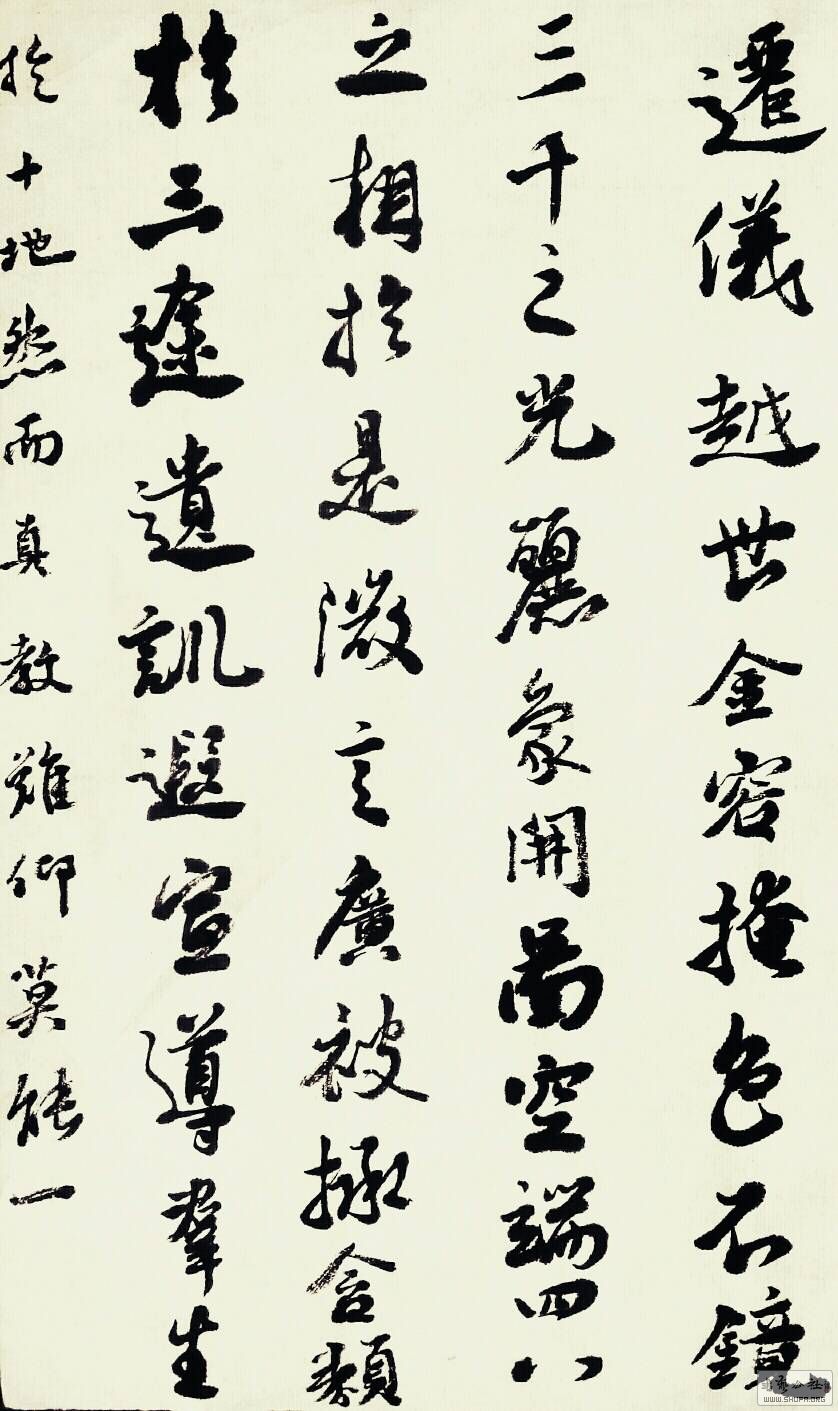 遷儀越世金容掩色不鏡
三千之光麗象開圖空端四八
之相於是微言廣被拯含類
於三途遺訓遐宣導羣生
於十地然而真教難仰莫能一
WWW.SHUFA.ORG